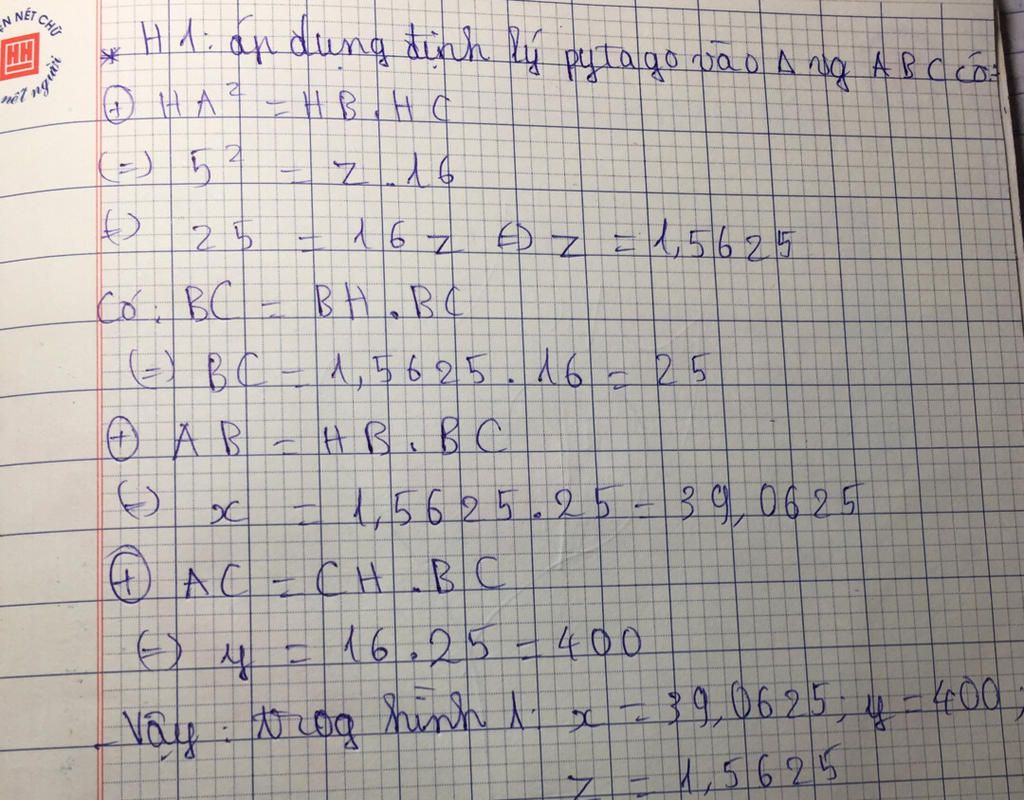 ỆN NẾT CHỮ
HH
nết người
* H1: áp dụng định lý pytago vào Δ vg ABC có:
⊕ HA² = HB.HC
(=) 5² = z.16
(=) 25 = 16z (=) z = 1,5625
Có: BC = BH.BC
(=) BC = 1,5625.16 = 25
⊕ AB = HB.BC
(=) x = 1,5625.25 = 39,0625
⊕ AC = CH.BC
(=) y = 16.25 = 400
Vậy: trog hình 1: x = 39,0625; y = 400;
z = 1,5625